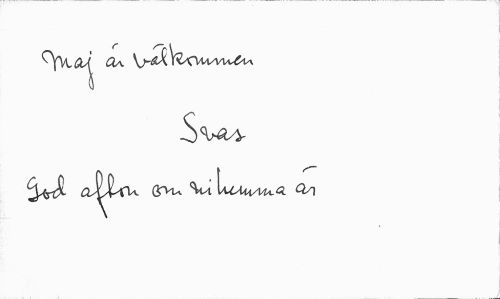 Maj är välkommen
Svas
God afton om ni hemma är